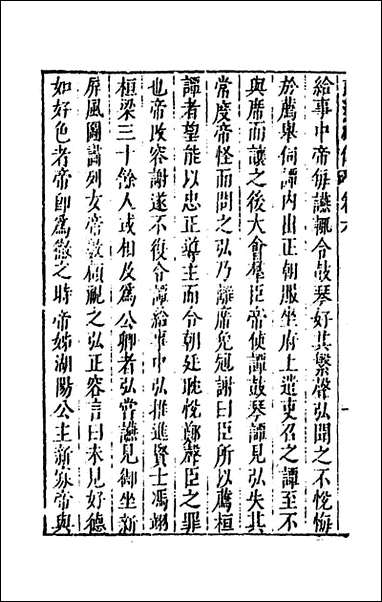 給事中帝每讌輒令鼓琴好其繁聲弘聞之不悅悔
於薦舉伺譚內出正朝服坐府上遣吏召之譚至不
與席而讓之後大會羣臣帝使譚鼓琴譚見弘失其
常度帝怪而問之弘乃離席免冠謝曰臣所以薦桓
譚者望能以忠正導主而令朝廷耽悅鄭聲臣之罪
也帝改容謝遂不復令譚給事中弘推進賢士馮翊
桓梁三十餘人或相及為公卿者弘嘗讌見御坐新
屏風圖畫列女帝數顧視之弘正容言曰未見好德
如好色者帝即為徹之時帝姊湖陽公主新寡帝與